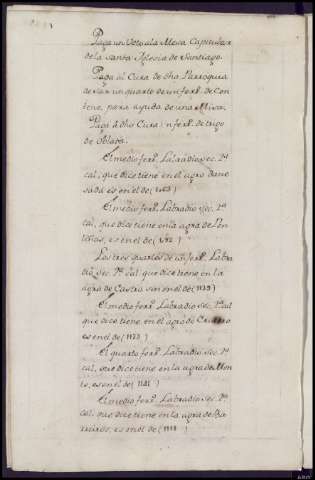 Paga un Voto a la Mesa Capitular
de la Santa Iglesia de Santiago.
Paga al Cura de dha Parroquia
un quarto de un ferº. de Cen
teno, para ayuda de una Misa.
Paga á dho Cura un ferº. de trigo
de Oblata.
El medio ferº. Labradio sec. 1ª
cal, que dice tiene en el agro
es en el de (
El medio ferº. Labradio sec. 1ª
cal, que dice tiene en la agra de
es en el de (
Los tres quartos de un ferº. Labra
dio sec. 1ª Cal que dice tiene en la
agra de Castro son en el de (
El medio ferº. Labradio sec. 1ª cal
que dice tiene en el agro de
es en el de (1173)
El quarto ferº. Labradio sec. 1ª
cal, que dice tiene en la agra de
es en el de (1181)
El medio ferº. Labradio sec. 1ª
cal. que dice tiene en la agra de
es en el de (